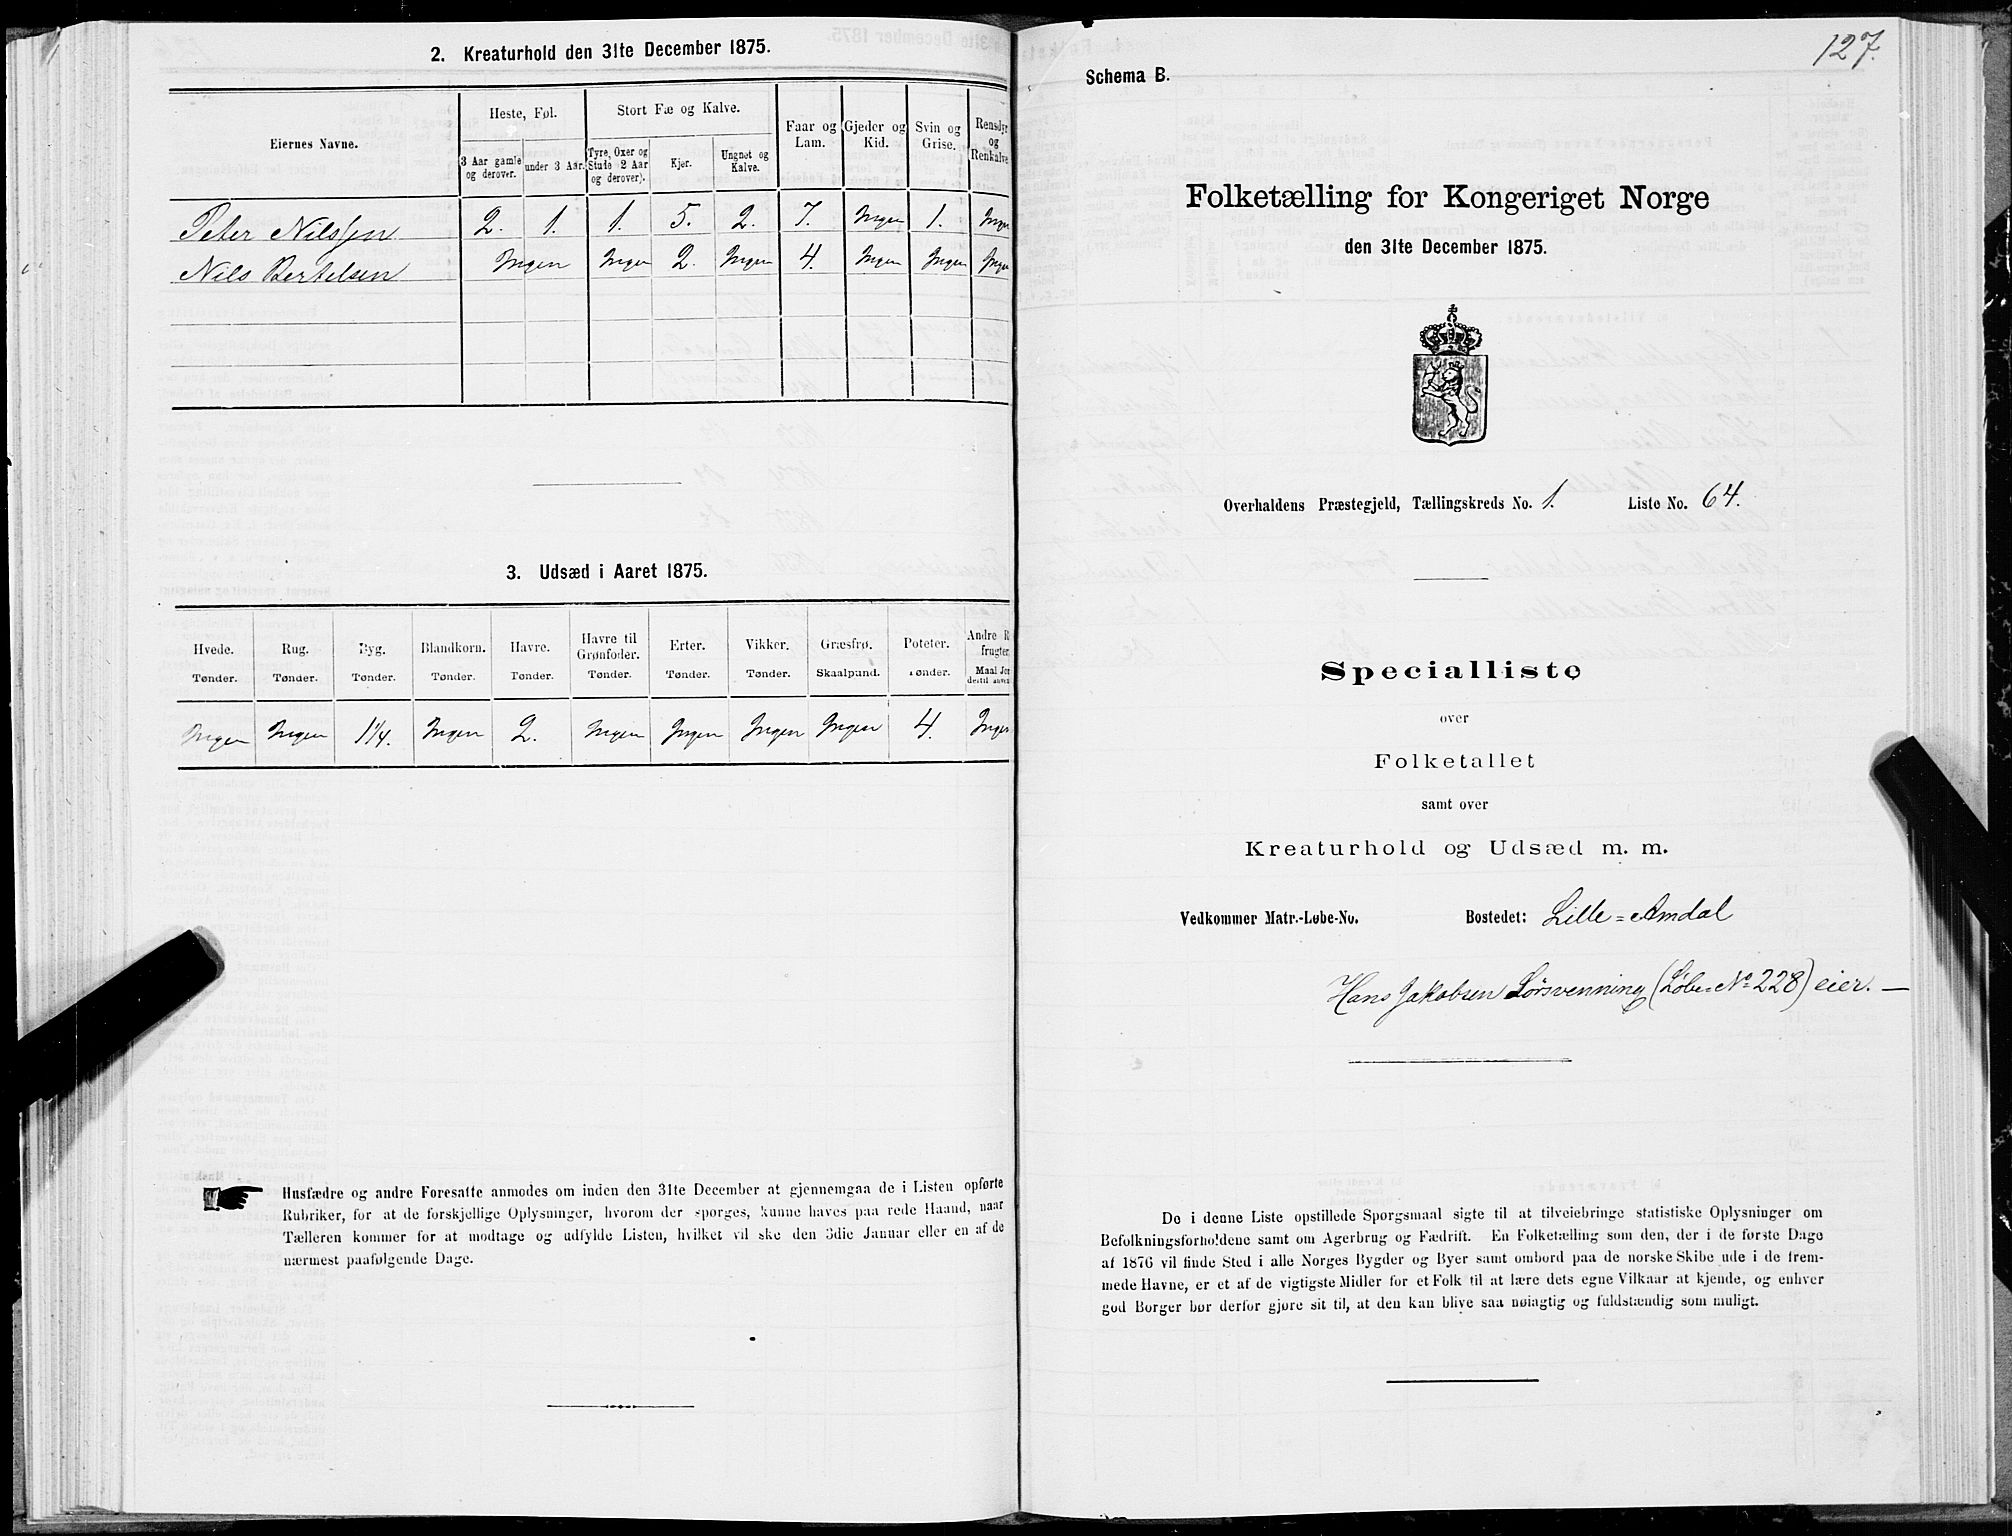 2. Kreaturhold den 31te December 1875.
Eiernes Navne.
Heste, Føl.
3 Aar gamle og derover.
under 3 Aar.
Stort Fæ og Kalve.
Tyre, Oxer og Stude (2 Aar og derover).
Kjør.
Ungnøt og Kalve.
Faar og Lam.
Gjeder og Kid.
Svin og Grise.
Rensdyr og Renkalve
Peter Nilssen 2. 1. 1. 5. 2. 7. Ingen 1. Ingen
Nils Bertelsen Ingen Ingen 2. Ingen 4. Ingen Ingen Ingen
3. Udsæd i Aaret 1875.
Hvede. Rug. Byg. Blandkorn. Havre. Havre til Grønfoder. Erter. Vikker. Græsfrø. Poteter. Andre R frugter
Tønder. Tønder. Tønder. Tønder. Tønder. Tønder. Tønder. Tønder. Skaalpund. Tønder. Maal Jor dertil anven
Ingen Ingen 1 1/4. Ingen 2. Ingen Ingen Ingen Ingen 4. Ingen
Husfædre og andre Foresatte anmodes om inden den 31te December at gjennemgaa de i Listen opførte
Rubriker, for at de forskjellige Oplysninger, hvorom der spørges, kunne haves paa rede Haand, naar
Tælleren kommer for at modtage og udfylde Listen, hvilket vil ske den 3die Januar eller en af de
nærmest paafølgende Dage.
127.
Schema B.
Folketælling for Kongeriget Norge
den 31te December 1875.
Overhaldens Præstegjeld, Tællingskreds No. 1. Liste No. 64.
Specialliste
over
Folketallet
samt over
Kreaturhold og Udsæd m. m.
Vedkommer Matr.-Løbe-No. Bostedet: Lille=Amdal
Hans Jakobsen Lørsvenning (Løbe=No 228) eier. —
De i denne Liste opstillede Spørgsmaal sigte til at tilveiebringe statistiske Oplysninger om
Befolkningsforholdene samt om Agerbrug og Fædrift. En Folketælling som den, der i de første Dage
af 1876 vil finde Sted i alle Norges Bygder og Byer samt ombord paa de norske Skibe ude i de frem-
mede Havne, er et af de vigtigste Midler for et Folk til at lære dets egne Vilkaar at kjende, og enhver
god Borger bør derfor gjøre sit til, at den kan blive saa nøiagtig og fuldstændig som muligt.